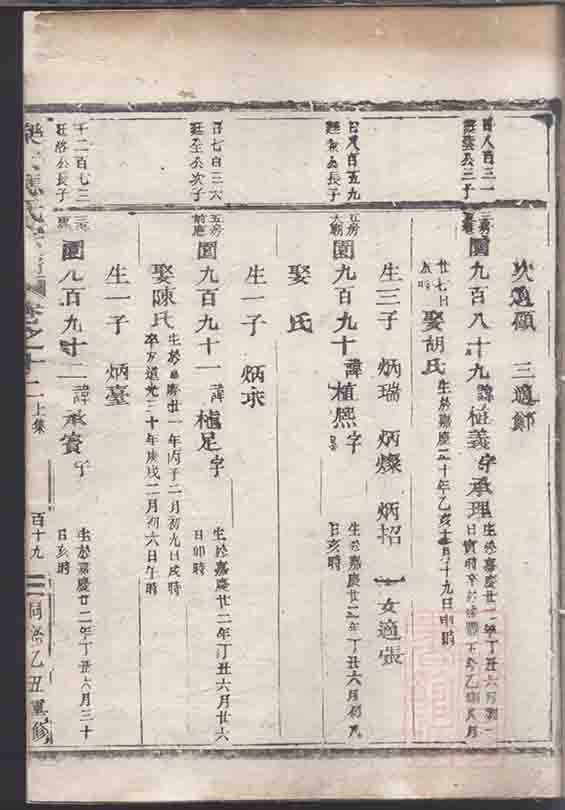 次適顧 三適鄭
百八百三一
公三子
園九百八十九 諱植義 字承理
生於嘉慶廿二年丁丑六月初一
日寅時卒於
廿七日
娶胡氏 生於嘉慶二十年乙亥十月十九日申時
生三子 炳瑞 炳燦 炳招 一女適張
百八百五九
公長子
五房
園九百九十 諱植熙 字
生於嘉慶廿二年丁丑六月初九
日亥時
娶 氏
生一子 炳求
百七百三六
公次子
五房
前應
園九百九十一 諱植足 字
生於嘉慶廿二年丁丑六月廿六
日卯時
娶陳氏 生於嘉慶廿一年丙子二月初九日戌時
卒於道光三十年庚戌二月初六日午時
生一子 炳臺
千二百七三
公長子
園九百九十二 諱承賓 字
生於嘉慶廿二年丁丑六月三十
日亥時
應氏宗譜 卷之十二 上集 百十九 同治乙丑重修